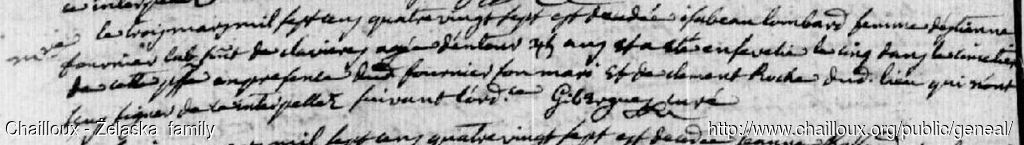 le trois mars mil sept cens quatre vingt sept est decedée isabeau lombard femme destienne
fournier lab.r de clavieres agée denvion 35 ans et a eté ensevelie le cinq dans le cimetiere
de cette psse en presence dud fournier son mari et de clement Roche dud. lieu qui n'ont
seu signer de ce interpellez suivant lord.ce Gibergues curé
mil sept cens quatre vingt sept est decedée jeanne
Chailloux - Żelaska family
http://www.chailloux.org/public/geneal/